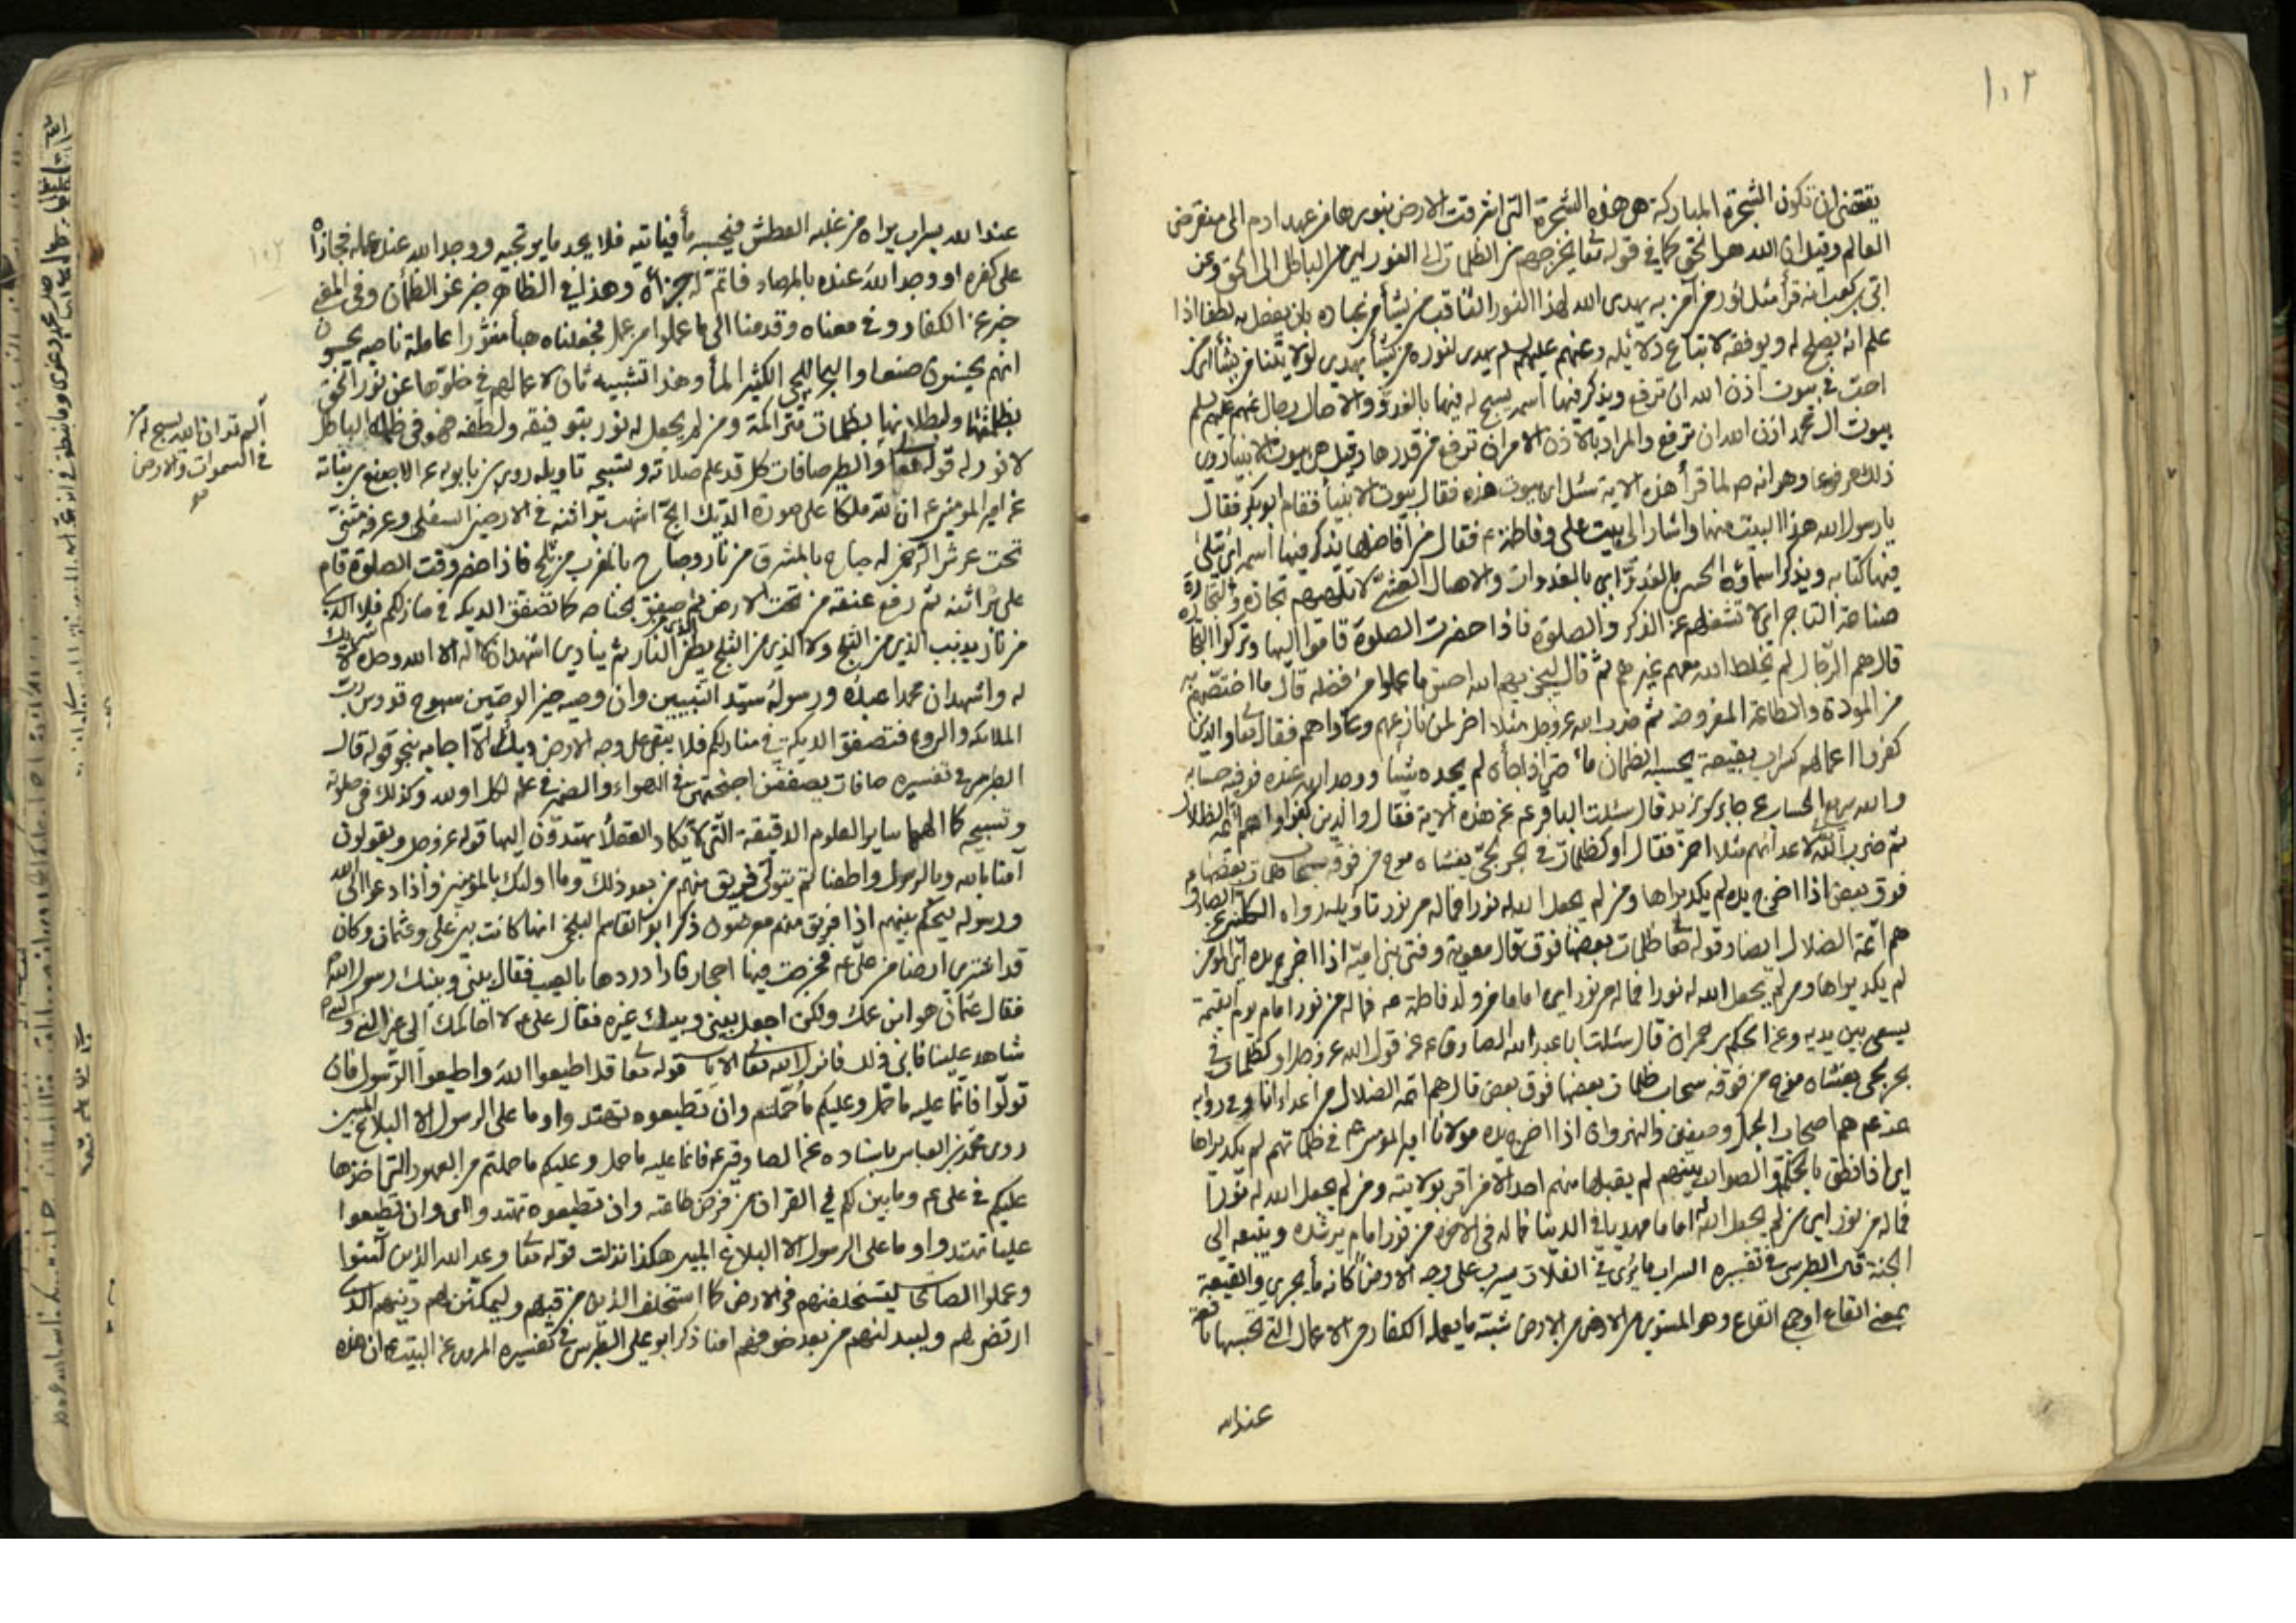 ١٠٢
يقتضي ان تكون الشجرة المباركة هي هذه الشجرة التي اشرقت الارض بنورها من عهد ادم الى منقرض
العالم وقيل ان الله هو الحق كما في قوله تعا يخرجهم من الظلمات الى النور اي من الباطل الى الحق وعن
ابي بن كعب انه قرأ مثل نور من آمن به يهدي الله لهذا النور الثاقب من يشأ من عباده بان يفعل به لطفا اذا
علم انه يصلح له ويوفقه لاتباع دلائله وعنهم عليهم السلم يهدي لنوره من يشأ يهدي لولايتنا من يشأ اي من
احب في بيوت اذن الله ان ترفع ويذكر فيها اسمه يسبح له فيها بالغدو والاصال رجال عنهم عليهم السلم
بيوت ال محمد اذن الله ان ترفع والمراد بالاذن الامر ان ترفع من قدرها وقيل هي بيوت الانبيا روى
ذلك مرفوعا وهو انه ص لما قرأ هذه الاية سئل اي بيوت هذه فقال بيوت الانبيأ فقام ابو بكر فقال
يا رسول الله هذا البيت منها واشار الى بيت علي وفاطمة ع فقال من افاضلها يذكر فيها اسمه اي يتلى
فيها كتابه ويذكر اسماؤه الحسنى بالغدو اي بالغدوات والاصال العشي لا تلهيهم تجارة والتجارة
صناعة التاجر اي لا تشغلهم عن الذكر والصلوة فاذا حضرت الصلوة قاموا اليها وتركوا التجارة
قال هم الرجال لم يخلط الله معهم غيرهم ثم قال ليجزيهم الله احسن ما عملوا من فضله قال ما اختصهم به
من المودة والطاعة المفروضة ثم ضرب الله عز وجل مثلا اخر لمن نازعهم وعاداهم فقال تعا والذين
كفروا اعمالهم كسراب بقيعة يحسبه الظمان مأ حتى اذا جأه لم يجده شيئا ووجد الله عنده فوفيه حسابه
والله سريع الحساب عن جابر بن يزيد قال سئلت الباقر ع عن هذه الاية فقال والذين كفروا هم ائمة الضلال
ثم ضرب الله لاعدائهم مثلا اخر فقال او كظلمات في بحر لجي يغشاه موج من فوقه سحاب ظلمات بعضها
فوق بعض اذا اخرج يده لم يكد يراها ومن لم يجعل الله له نورا فما له من نور تاويله رواه
هم ائمة الضلال ايضا وقوله تعا ظلمات بعضها فوق قال معوية وفتن بني امية اذا اخرج يده اي المؤمن
لم يكد يراها ومن لم يجعل الله له نورا فما له من نور اي اماما من ولد فاطمة ع فما له من نور امام يوم القيمة
يسعى بين يديه وعن الحكم بن حمران قال سئلت ابا عبد الله الصادق ع عن قول الله عز وجل او كظلمات في
بحر لجي يغشاه موج من فوقه سحاب ظلمات بعضها فوق بعض قال هم ائمة الضلال من اعدائنا وفي رواية
عنه ع هم اصحاب الجمل وصفين والنهروان اذا اخرج يده مولانا امير المؤمنين ع في ظلماتهم لم يكد يراها
اي اذا نطق بالحكمة والصواب بينهم لم يقبلها منهم احد الا من اقر بولايته ومن لم يجعل الله له نورا
فما له من نور اي من لم يجعل الله له اماما مهديا في الدنيا فما له في الاخرة من نور امام يرشده ويتبعه الى
الجنة قال الطبرسي في تفسيره السراب ما يرى في الفلات يسرب على وجه الارض كانه مأ يجري والقيعة
بمعنى القاع او جمع القاع وهو المستوى من الارض شبه ما يعمله الكفار من الاعمال التي تحسبها نافعة
عند الله
عند الله بسراب يراه من غلبه العطش فيحسبه مأ فيأتيه فلا يجد ما يرتجيه ووجد الله عند عمله فجازاه
على كفره او وجد الله عنده بالمرصاد فاتم له جزأه وهذا في الظاهر خبر عن الظمأن وفي المعنى
خبر عن الكفار وفي معناه وقدمنا الى ما عملوا من عمل فجعلناه هبأ منثورا عاملة ناصبه يحسبون
انهم يحسنون صنعا والبحر اللجي الكثير المأ وهذا تشبيه ثان لاعمالهم في خلوها عن نور الحق
بظلمتها ولبطلانها بظلمات متراكمة ومن لم يجعل له نور بتوفيقه ولطفه فهو في ظلمة الباطل
لا نور له قوله تعا والطير صافات كل قد علم صلاته وتسبيحه تاويله روى ابن بابويه عن الاصبغ بن نباته
عن امير المؤمنين ع ان لله ملكا على صورة الديك الابح اشهب براثنه في الارضين السفلى وعرفه مثنى
تحت عرش الرحمن له جناح بالمشرق من نار وجناح بالمغرب من ثلج فاذا حضر وقت الصلوة قام
على براثنه ثم رفع عنقه من تحت الارض ثم صفق بجناحه كما تصفق الديكه في منازلكم فلا الذي
من نار يذيب الذي من الثلج ولا الذي من الثلج يطفئ النار ثم ينادي اشهد ان لا اله الا الله وحده لا شريك
له واشهد ان محمدا عبده ورسوله سيد النبيين وان وصيه خير الوصيين سبوح قدوس رب
الملائكه والروح فتصفق الديكة في منازلكم فلا يبقى على وجه الارض ديك الا اجابه بنحو قوله قال
الطبرسي في تفسيره صافات يصففن اجنحتهن في الهواء والضمير في علم لكل او لله وكذلك في صلوته
وتسبيحه كما الهمها ساير العلوم الدقيقة التي لا يكاد العقلأ يهتدون اليها قوله عز وجل ويقولون
آمنا بالله وبالرسول واطعنا ثم يتولى فريق منهم من بعد ذلك وما اولئك بالمؤمنين واذا دعوا الى الله
ورسوله ليحكم بينهم اذا فريق منهم معرضون ذكر ابو القاسم البلخي انها كانت بين علي وعثمان وكان
قد اشترى ارضا من علي ع فخرجت فيها احجار فاراد ردها بالعيب فقال بيني وبينك رسول الله
فقال عثمان هو ابن عمك ولكن اجعل بيني وبينك غيره فقال علي ع لا احاكمك الى غير النبي
شاهد علينا فابى ذلك فانزل الله تعا الايات قوله تعا قل اطيعوا الله واطيعوا الرسول فان
تولوا فانما عليه ما حمل وعليكم ما حملتم وان تطيعوه تهتدوا وما على الرسول الا البلاغ المبين
روى محمد بن العباس باسناده عن الصادق ع فانما عليه ما حمل وعليكم ما حملتم من العهود التي اخذها
عليكم في علي ع وما بين لكم في القران من فرض طاعته وان تطيعوه تهتدوا اي وان تطيعوا
عليا تهتدوا وما على الرسول الا البلاغ المبين هكذا نزلت قوله تعا وعد الله الذين آمنوا
وعملوا الصالحات ليستخلفنهم في الارض كما استخلف الذين من قبلهم وليمكنن لهم دينهم الذي
ارتضى لهم وليبدلنهم من بعد خوفهم امنا ذكر ابو علي الطبرسي في تفسيره المروى عن اهل البيت ع ان هذه
ألم تر ان الله يسبح له من
في السموات والارض